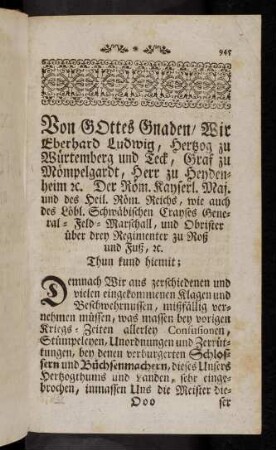 945
Von GOttes Gnaden/ Wir
Eberhard Ludwig, Hertzog zu
Würtemberg und Teck, Graf zu
Mömpelgardt, Herr zu Heyden-
heim ꝛc. Der Röm. Kayserl. Maj.
und des Heil. Röm. Reichs, wie auch
des Löbl. Schwäbischen Crayses Gene-
ral-Feld-Marschall, und Obrister
über drey Regimenter zu Roß
und Fuß, ꝛc.
Thun kund hiemit;
Demnach Wir aus zerschiedenen und
vielen eingekommenen Klagen und
Beschwehrnussen, mißfällig ver-
nehmen müssen, was massen bey vorigen
Kriegs-Zeiten allerley Confusionen,
Stümpeleyen, Unordnungen und Zerrüt-
tungen, bey denen verburgerten Schlos-
sern und Büchsenmachern, dieses Unsers
Hertzogthums und Landen, sehr einge-
brochen, inmassen Uns die Meister die-
Ooo ser